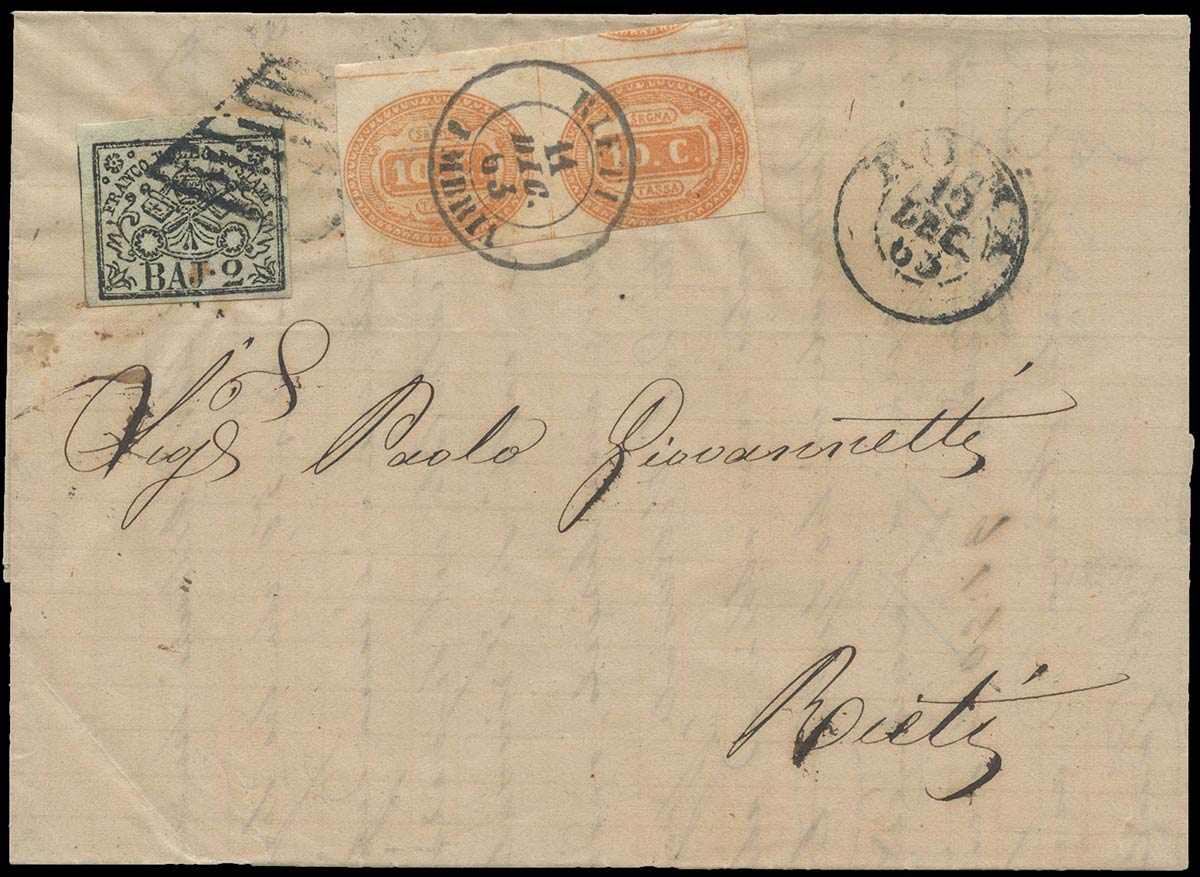 FRANCO BOLLO POSTALE
BAJ· 2
SEGNA
10. C.
TASSA
SEGNA
10. C.
TASSA
RIETI
DIC.
63
UMBRIA
ROMA
15
DEC
63
Sigr Paolo Giovannetti
Rieti